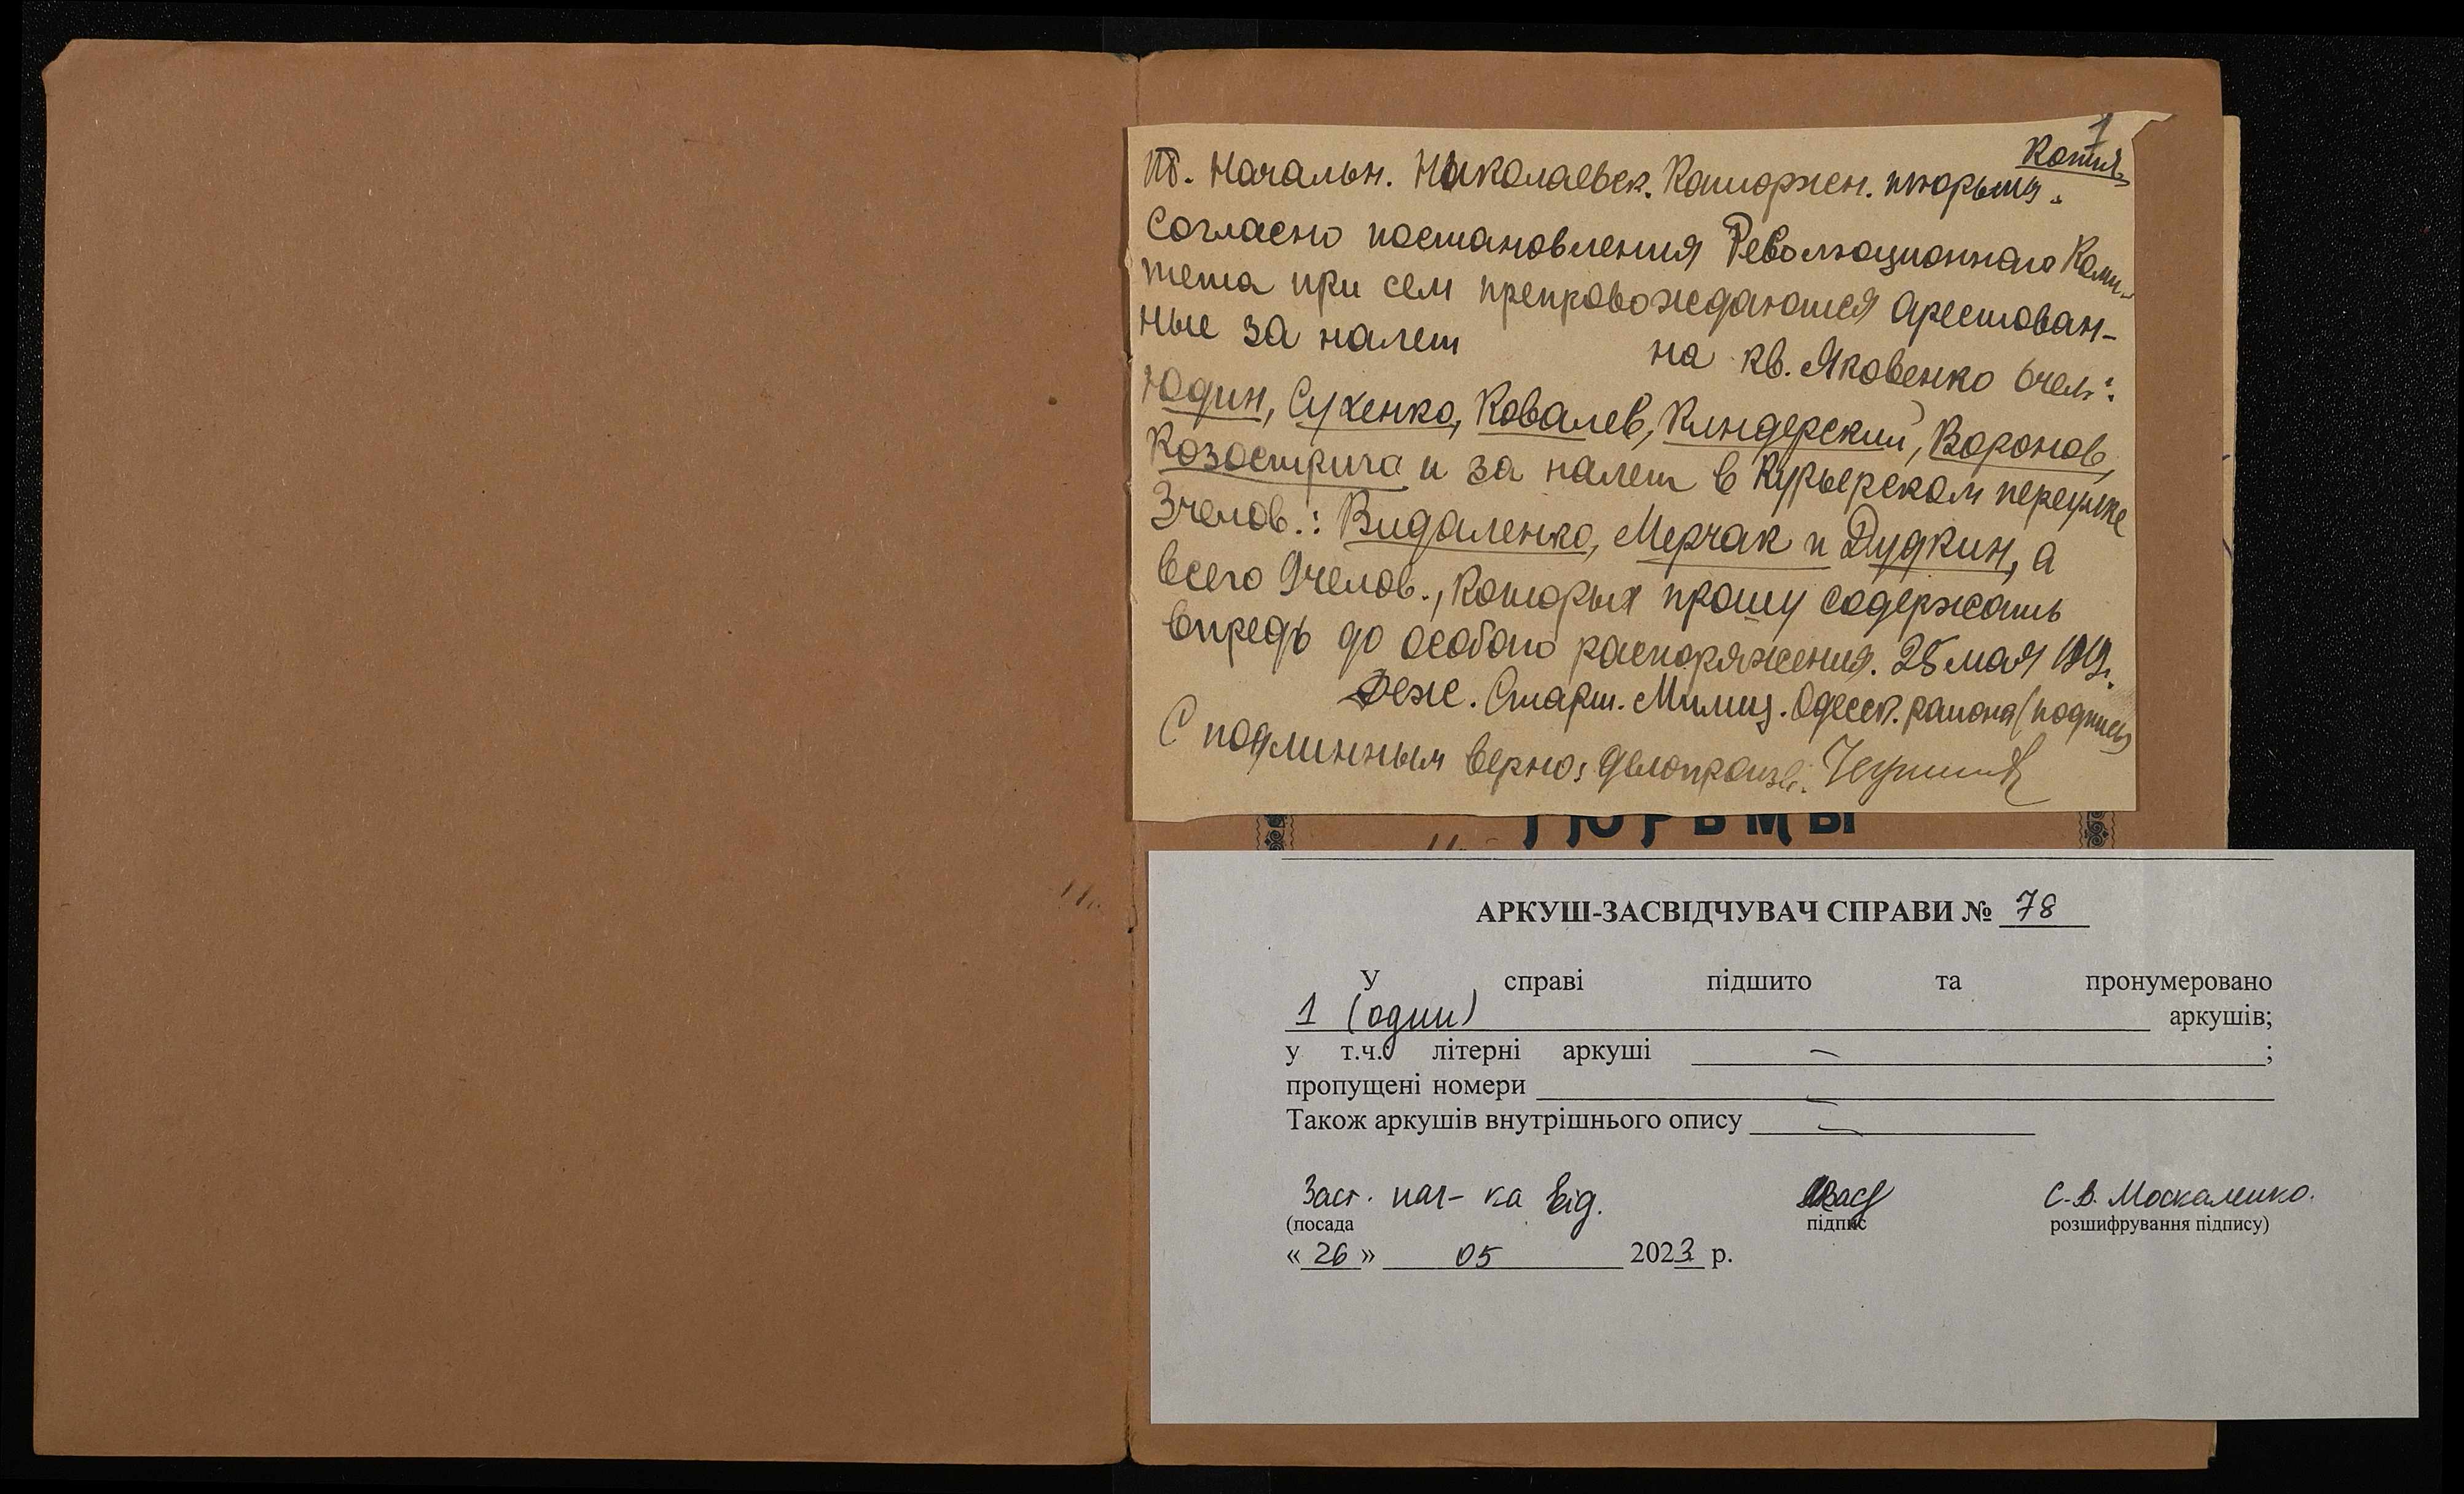 1
Копия
Т. Начальн. Николаевск. Каторжн. тюрьмы.
Согласно постановления Революционнаго Коми-
тета при сем препровождаются арестован-
ные за налет на кв. Яковенко 6 чел.:
Юдин, Сухенко, Ковалев, Киндерский, Воронов,
Козострига и за налет в Курьерском переулке
3 челов.: Видаленко, Мерчак и Дудкин, а
всего 9 челов., которых прошу содержать
впредь до особого распоряжения. 25 мая 1919г.
Деж. Старш. Милиц. Одесск. района (подпись)
С подлинным верно: Делопроизв.
ТЮРЬМЫ
АРКУШ-ЗАСВІДЧУВАЧ СПРАВИ № 78
У справі підшито та пронумеровано
1 (один) аркушів;
у т.ч.: літерні аркуші — ;
пропущені номери —
Також аркушів внутрішнього опису —
Заст. нач-ка від. С.В. Москаленко.
(посада підпис розшифрування підпису)
« 26 » 05 2023 р.